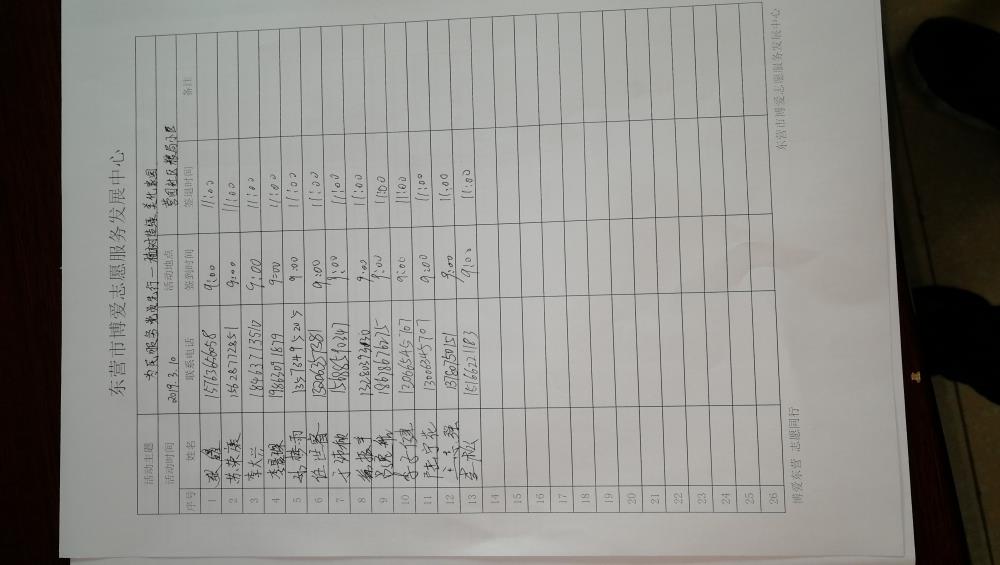 东营市博爱志愿服务发展中心
活动主题 为民服务党员先行—植树造绿 美化家园
活动时间 2019.3.10 活动地点 营园社区
序号 姓名 联系电话 签到时间 签退时间 备注
1 张 15763656058 9:00 11:00
2 苏荣康 15628772851 9:00 11:00
3 李大兴 9:00 11:00
4 李 19863091879 9:00 11:00
5 9:00 11:00
6 任世 13206357381 9:00 11:00
7 15688590347 9:00 11:00
8 9:00 11:00
9 18678676275 9:00 11:00
10 12066545707 9:00 11:00
11 陆字花 13006345707 9:00 11:00
12 13780750151 9:00 11:00
13 李 15166221183 9:00 11:00
14
15
16
17
18
19
20
21
22
23
24
25
26
博爱东营 志愿同行 东营市博爱志愿服务发展中心